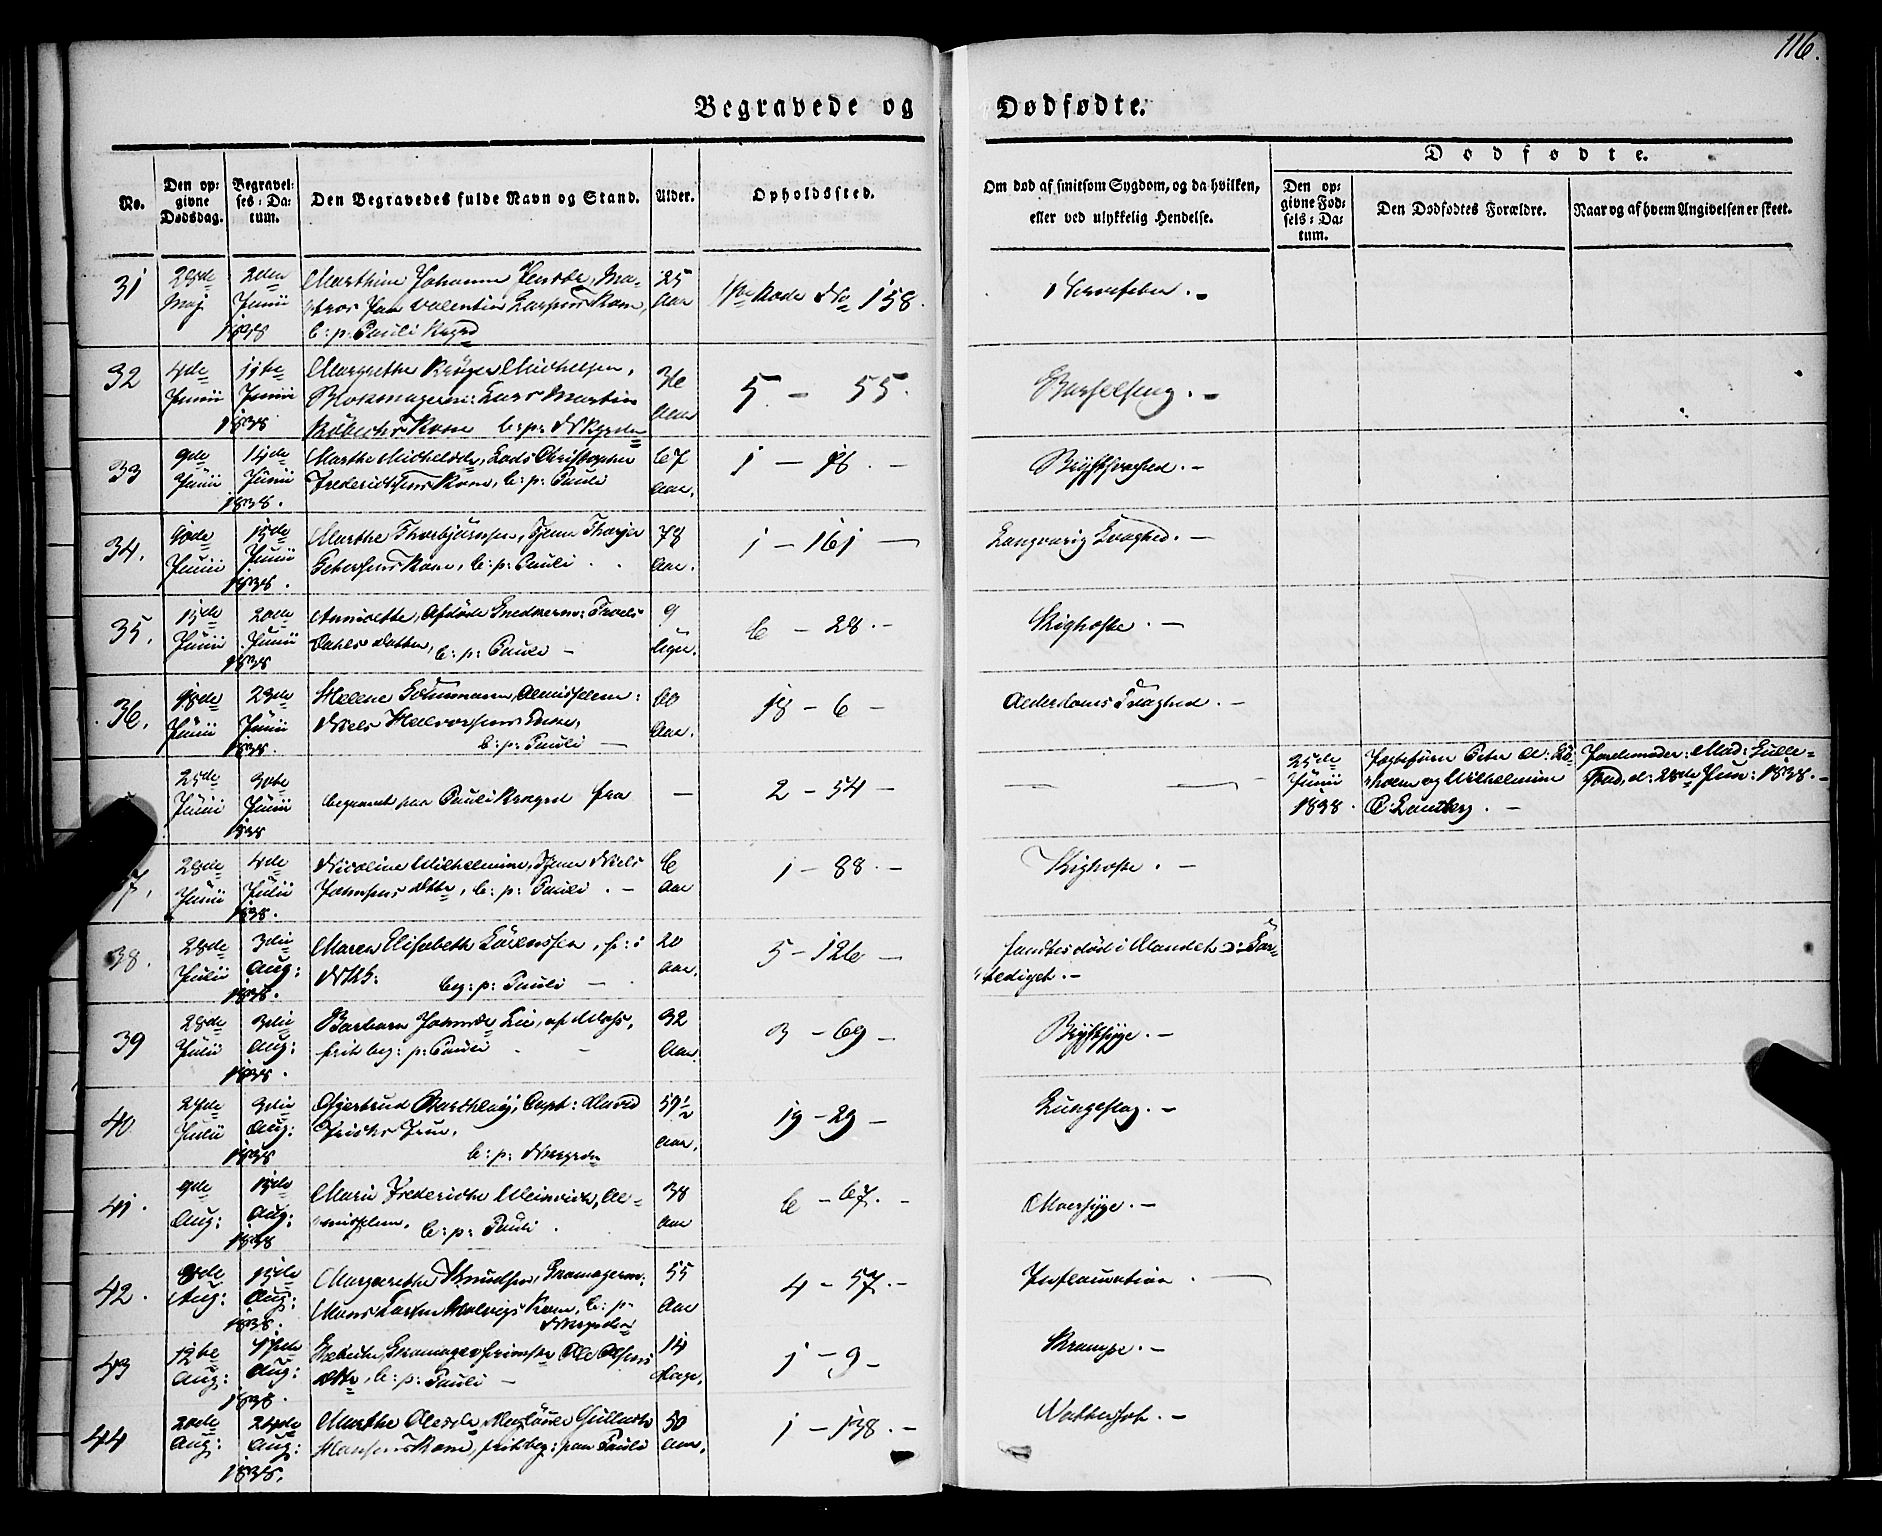 116.
Begravede og Dødfødte.
No.
Den opgivne Dødsdag.
Begravelses-Datum.
Den Begravedes fulde Navn og Stand.
Alder.
Opholdssted.
Om død af smitsom Sygdom, og da hvilken,
eller ved ulykkelig Hendelse.
Dødfødte.
Den opgivne Fødsels-Datum.
Den Dødfødtes Forældre.
Naar og af hvem Angivelsen er skeet.
31 28de Maj 2den Junii 1838
Marthin Johanne
Valentin Kone,
b: p: Pauli Kgrd
25 Aar
Rode No 158.
Nervefeber. -
32 4de Junii 11te Junii 1838
Margrethe Krøger Michelsen,
Blokmagersv: Lars Martin
Kone b: p: NKgrden
36 Aar
5 - 55.
Barselseng. -
33 9de Junii 14de Junii 1838.
Marthe Michelsdr, Lods Christopher
Frederichsens Kone, b: p: Pauli
67 Aar.
1 - 16. -
Brystsvaghed. -
34. 9de Junii 15de Junii 1838.
Marthe Thorbjørnsen, Tjener Tharjer
Kone, b: p: Pauli
78 Aar.
1 - 161 -
Langvarig Svaghed. -
35. 15de Junii 20de Junii 1838
Afdøde Snedkersv: Troels
Dahls Datter, b: p: Pauli -
9 Uger.
6 - 28. -
Kighoste. -
36. 18de Junii 23de Junii 1838.
Helene Almisslem:
Niels Halvorsens Enke,
b: p: Pauli -
60 Aar.
18 - 6 -
Alderdoms Svaghed. -
25de Junii 30te Junii 1838
begravet paa Pauli Kirkegrd fra
-
2 - 54 -
25de Junii 1838.
Peter A:
og Wilhelmine
C: Lantberg. -
Jordemoder: Mad:
d: 28de Jun: 1838. -
7. 28de Junii 4de Julii 1838.
Nicoline Wilhelmine, Tjener Niels
Johnsens Dttr, b: p: Pauli. -
6 Aar
1 - 88. -
Kighoste. -
38. 28de Julii 3die Aug: 1838.
Maren Elisabeth Sørenssen, f: i
beg: p: Pauli -
20 Aar.
5 - 126 -
fandtes død i Vandet
39 28de Julii 3die Aug: 1838.
Barbara Johnsdr Lie, af Moss,
frit beg: p: Pauli -
32 Aar.
3 - 69 -
Brystsyge. -
40 27de Julii 3die Aug: 1838
Gjertrud Capt: David
b: p: NKgrden
59½ Aar.
19 - 29 -
Lungeslag. -
41. 9de Aug: 15de Aug: 1838
Marie Frederiche Meinich, Almisslem,
b: p: Pauli.
38 Aar
6 - 67. -
42. 8de Aug: 15de Aug: 1838.
Margarethe Knudsen,
Hans Larsen Kone, b: p:
NKgrden
55 Aar
4 - 57. -
Inflamation. -
43 12te Aug: 17de Aug: 1838.
Ole Olsens
Dttr, b: p: Pauli -
14 Dage.
1 - 9 -
Krampe. -
44 20de Aug: 24de Aug: 1838.
Marthe Olesdr,
Hansens Kone, frit beg: paa Pauli
50 Aar.
1 - 138. -
Vattersot. -